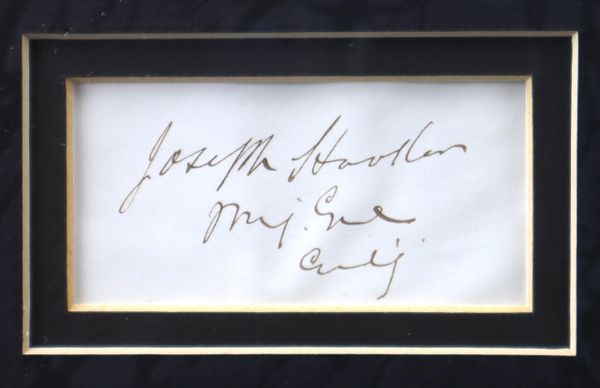 Joseph Hooker
Maj. Genl
Comd'g.